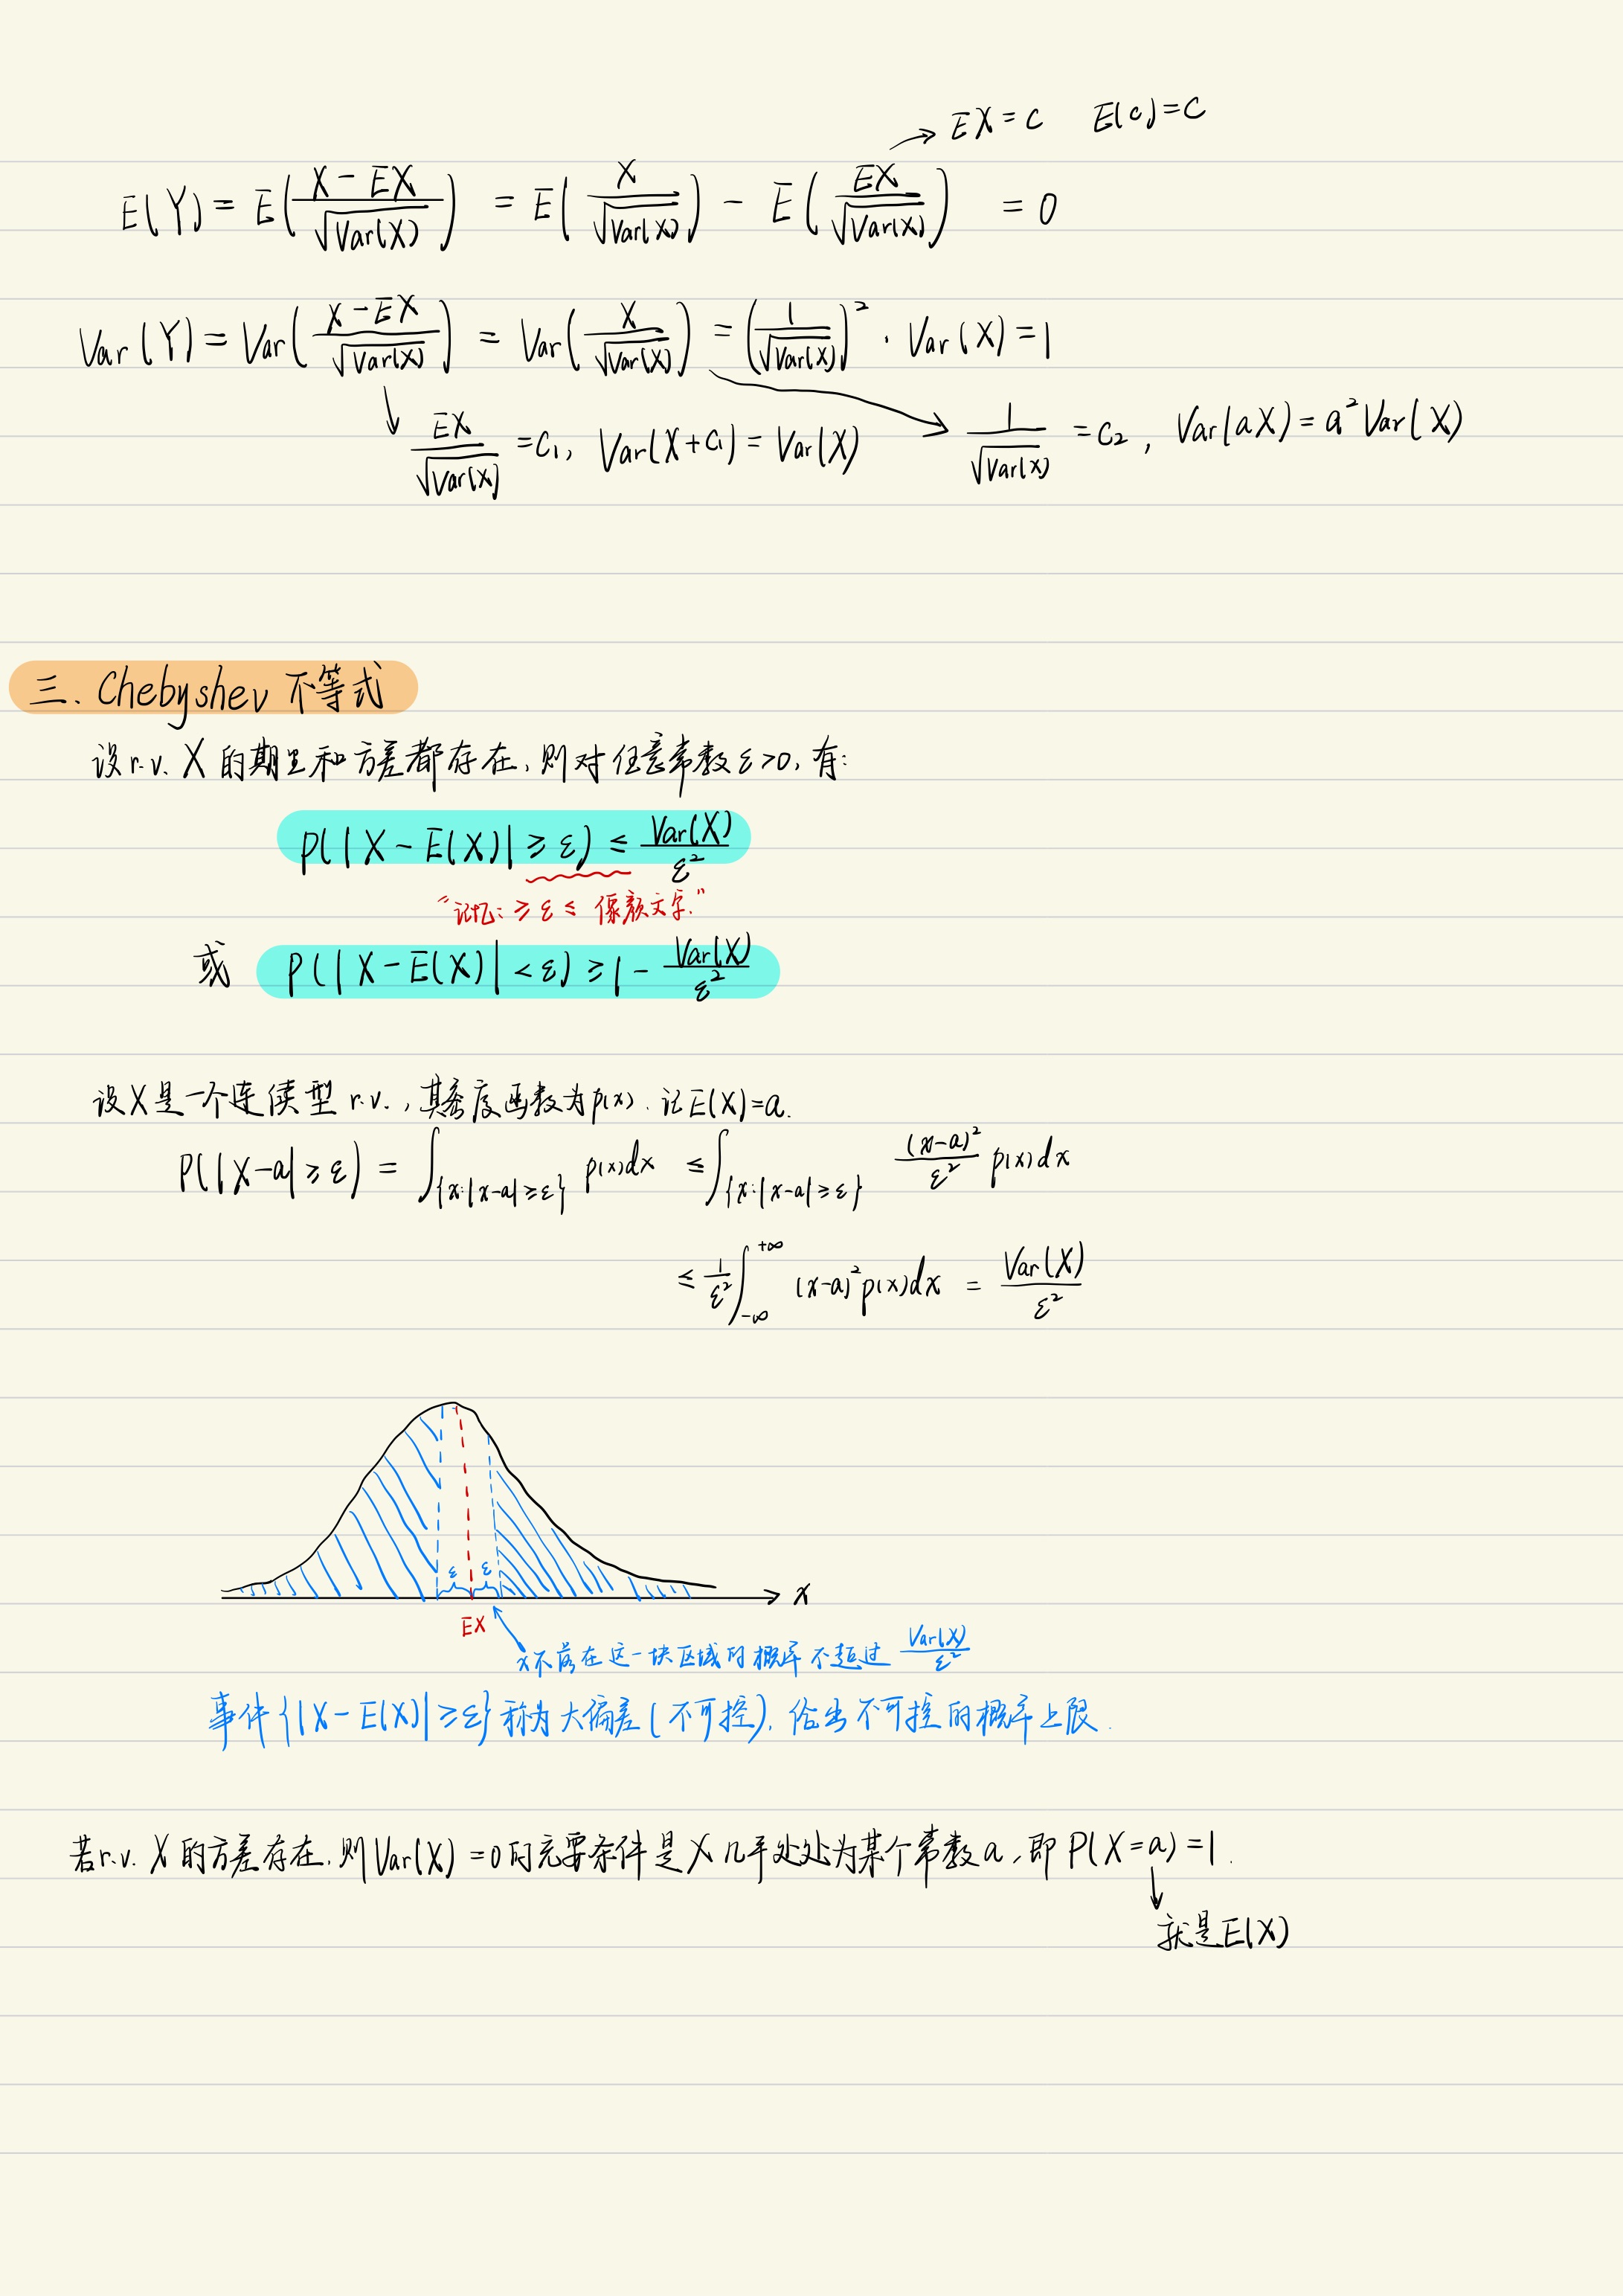 EX = c  E(c) = c
E(Y) = E((X - EX)/√Var(X)) = E(X/√Var(X)) - E(EX/√Var(X)) = 0
Var(Y) = Var((X - EX)/√Var(X)) = Var(X/√Var(X)) = (1/√Var(X))² · Var(X) = 1
EX/√Var(X) = C₁, Var(X+C₁) = Var(X)  1/√Var(X) = C₂, Var(aX) = a²Var(X)
三. Chebyshev 不等式
设 r.v. X 的期望和方差都存在, 则对任意常数 ε>0, 有:
P(|X - E(X)| ≥ ε) ≤ Var(X)/ε²
"记忆: ≥ ε ≤ 像颜文字."
或 P(|X - E(X)| < ε) ≥ 1 - Var(X)/ε²
设X是一个连续型 r.v., 其密度函数为p(x). 记E(X)=a.
P(|X-a| ≥ ε) = ∫_{x:|x-a|≥ε} p(x)dx ≤ ∫_{x:|x-a|≥ε} (x-a)²/ε² p(x)dx
≤ 1/ε² ∫_{-∞}^{+∞} (x-a)²p(x)dx = Var(X)/ε²
ε ε
x
EX
x不落在这一块区域的概率不超过 Var(X)/ε²
事件{|X - E(X)| ≥ε}称为大偏差(不可控), 给出不可控的概率上限.
若r.v. X 的方差存在, 则Var(X) = 0的充要条件是X几乎处处为某个常数a, 即P(X=a)=1.
就是E(X)